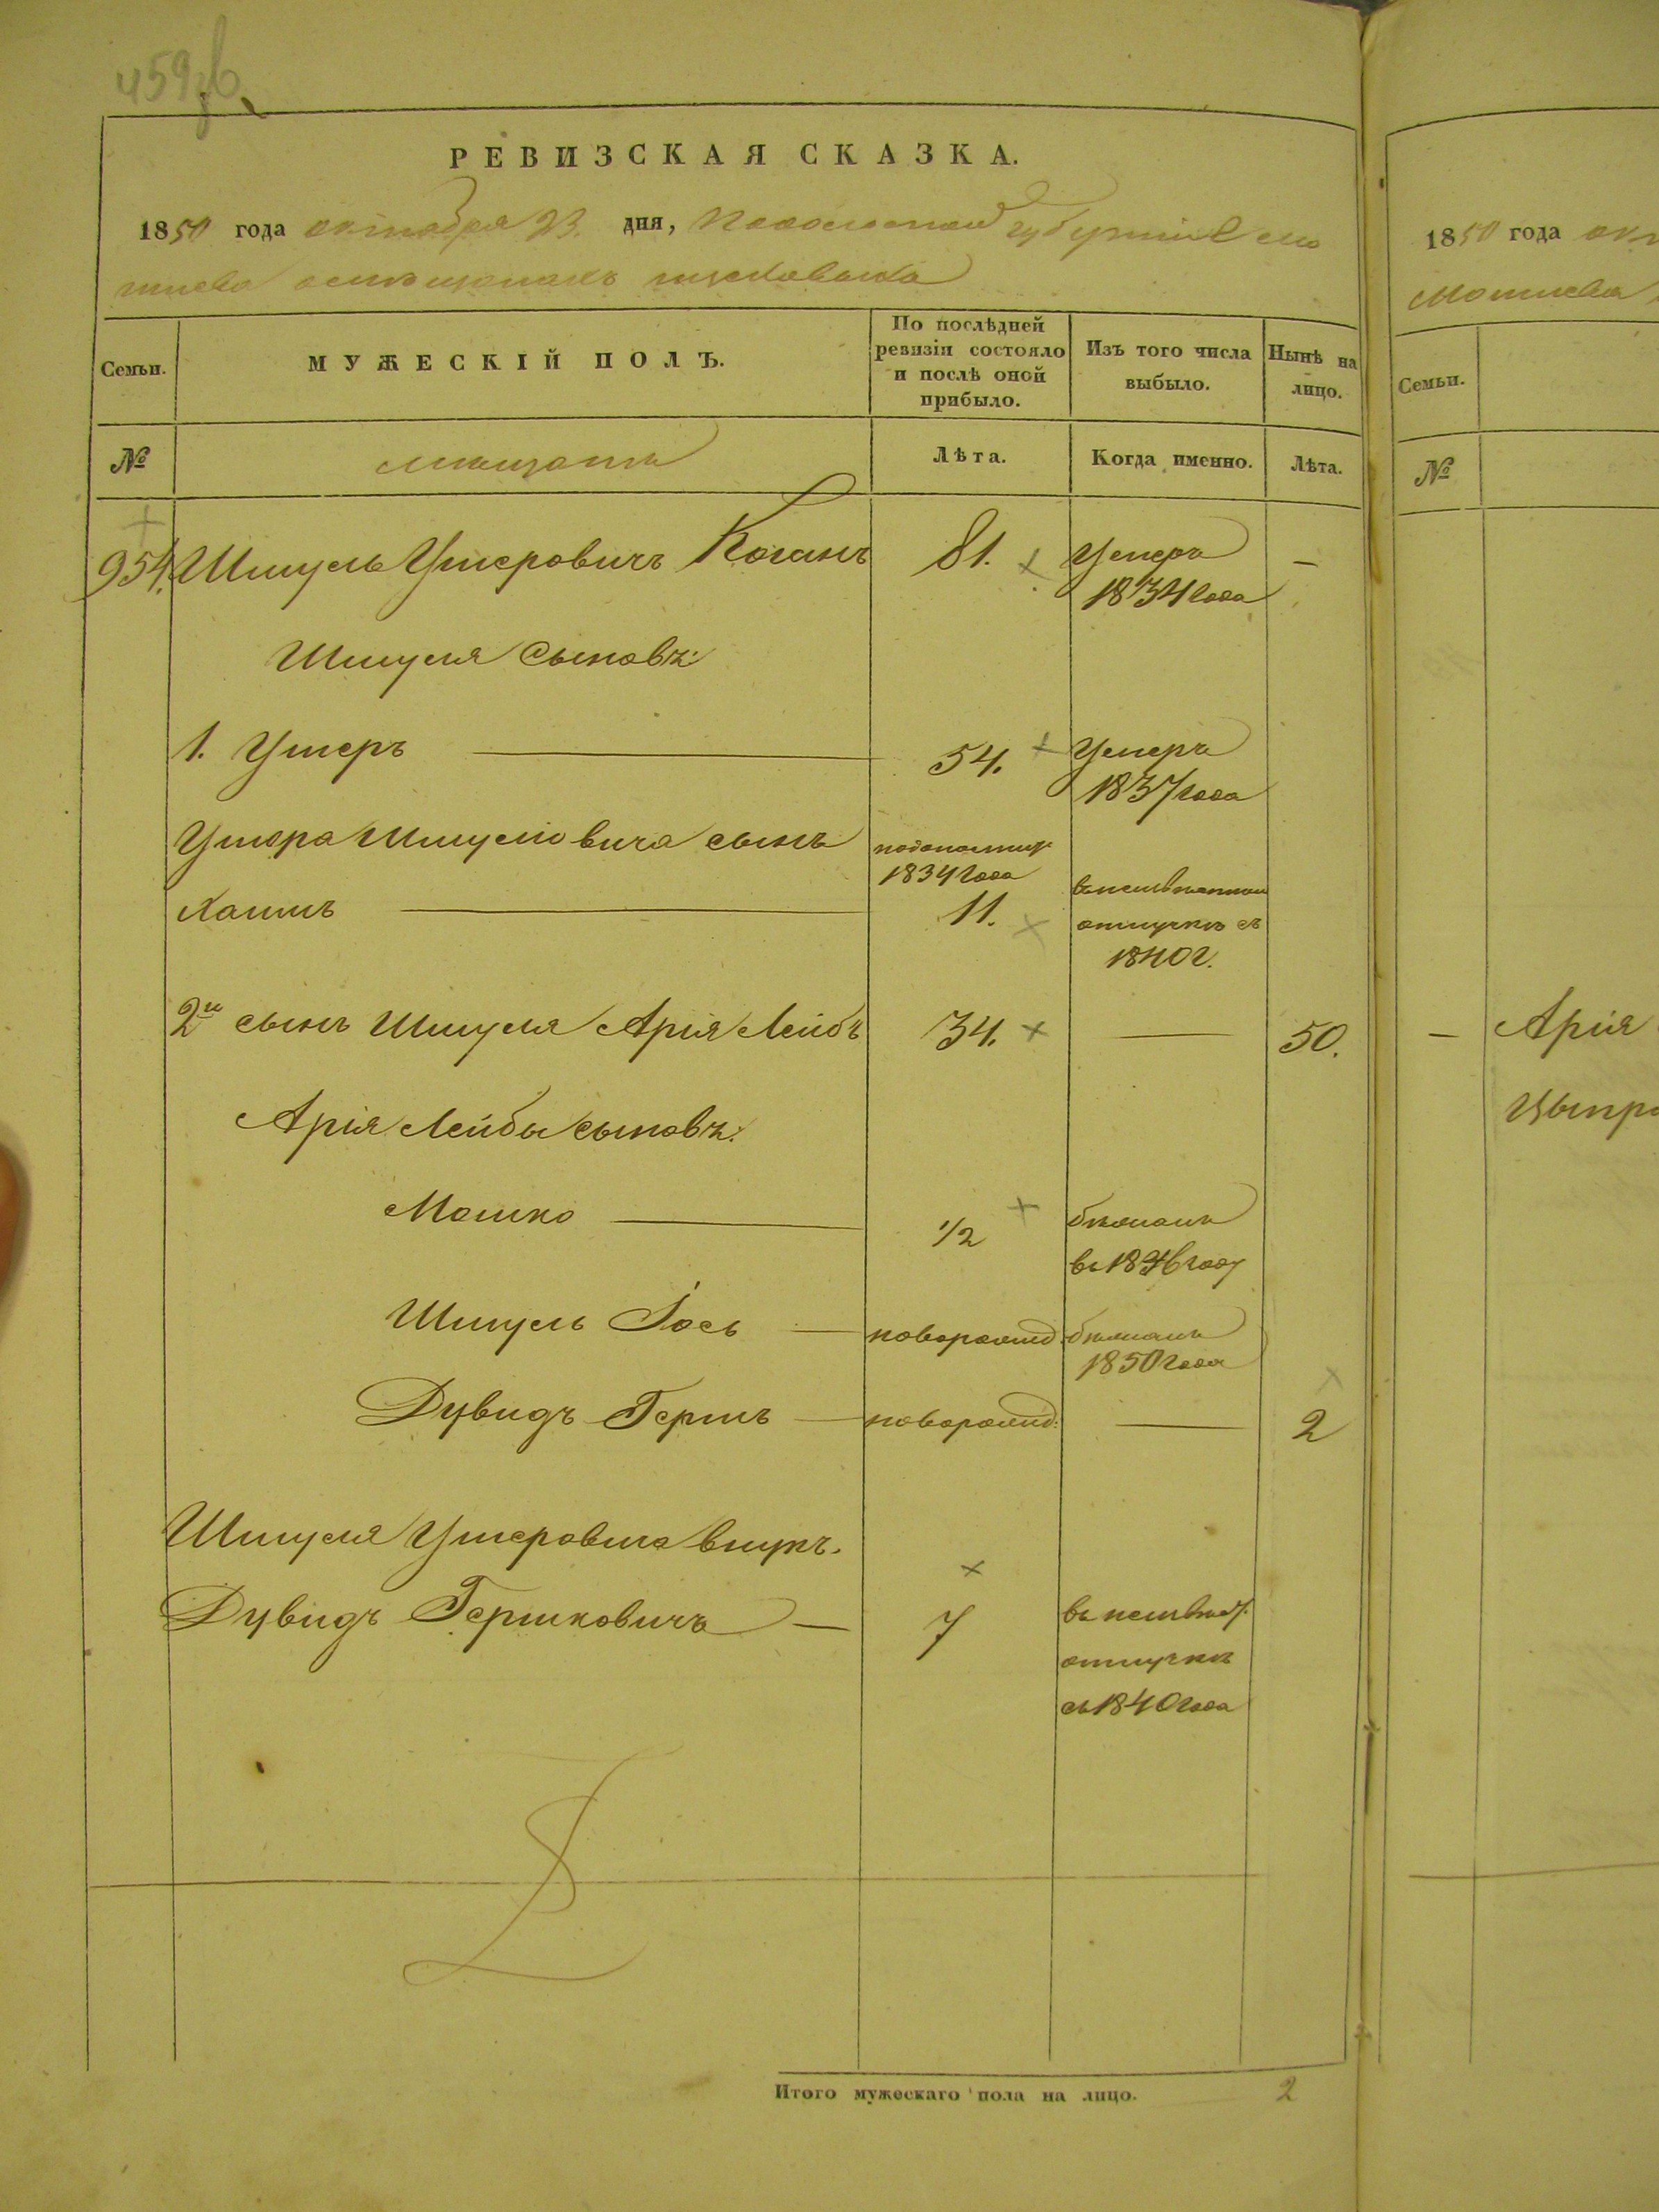 459 об.
РЕВИЗСКАЯ СКАЗКА.
1850 года октября 23. дня, Подольской губернiи
мѣщанахъ
Семьи.
МУЖЕСКIЙ ПОЛЪ.
По послѣдней ревизiи состояло и послѣ оной прибыло.
Изъ того числа выбыло.
Нынѣ на лицо.
№
мѣщане
Лѣта.
Когда именно.
Лѣта.
954. Шмуль Ушеровичъ Коганъ 81. Умеръ —
1834 года
Шмуля сыновъя:
1. Ушеръ 54. Умеръ
1837 года
Ушера Шмулювича сынъ
1834 года
Хаимъ 11. въ неизвѣстной
отлучкѣ съ
1840 г.
2й сынъ Шмуля Арiя Лейбъ 34. — 50.
Арiя Лейбы сыновъя:
Мошко 1/2 бѣжалъ
въ 1846 году
Шмуль Iось — новорожд. бѣжалъ
1850 года
Дувидъ Гершъ — новорожд: — 2
Шмуля Ушеровича внукъ.
Дувидъ Гершковичъ — 7 въ неизвѣст.
отлучкѣ
съ 1840 года
Итого мужескаго пола на лицо. 2
1850 года
Семьи.
№
— Арiя